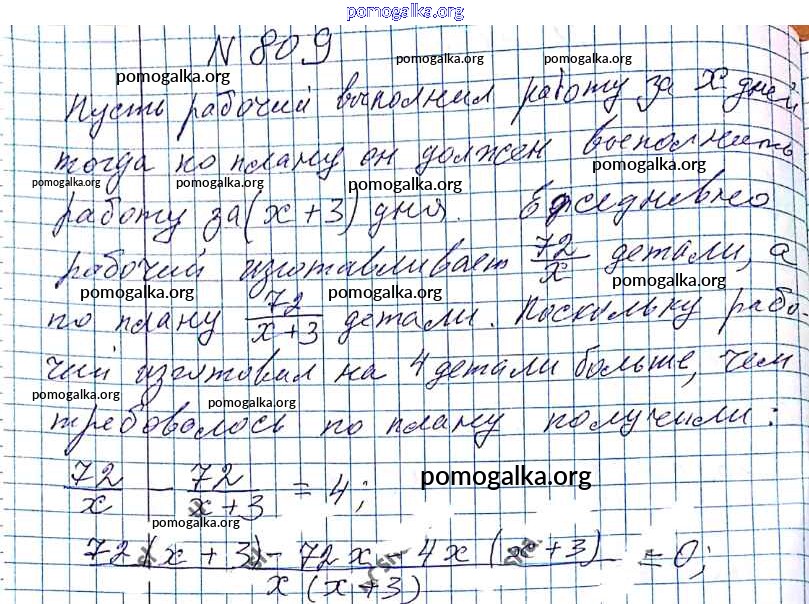 pomogalka.org
N 809
pomogalka.org pomogalka.org pomogalka.org
Пусть рабочий выполнил работу за x дней,
тогда по плану он должен выполнить
pomogalka.org pomogalka.org pomogalka.org pomogalka.org
работу за (x + 3) дня. Ежедневно
рабочий изготавливает 72/x детали, а
pomogalka.org pomogalka.org pomogalka.org
по плану 72/(x+3) детали. Поскольку рабо-
чий изготовил на 4 детали больше, чем
pomogalka.org pomogalka.org pomogalka.org
требовалось по плану получили:
72/x - 72/(x+3) = 4; pomogalka.org
pomogalka.org
(72(x + 3) - 72x - 4x(x + 3))/(x(x+3)) = 0;